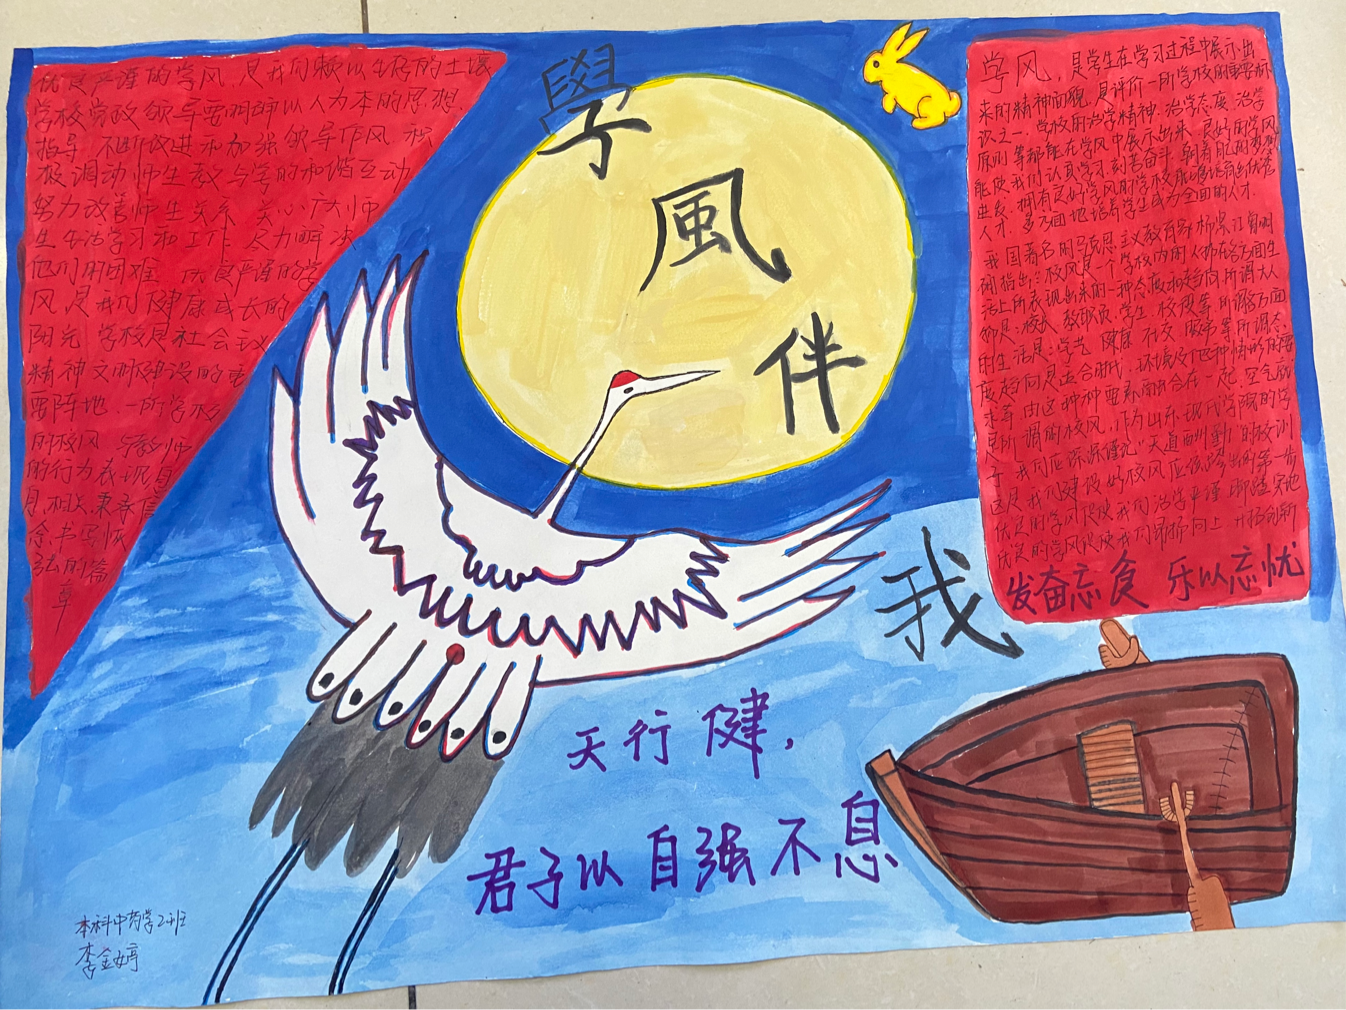 學
風
伴
我
优良严谨的学风,是我们赖以生存的土壤
学校党政领导要明确以人为本的思想,
指导,不断改进和加强领导作风,积
极调动师生教与学的和谐互动
努力改善师生关系,关心广大师
生生活学习和工作,尽力解决
他们的困难,优良严谨的学
风是我们健康成长的
阳光,学校是社会主义
精神文明建设的重
要阵地,一所学校
的校风,与教师
的行为表现息
息相关
念书写恢
弘的篇
章
学风,是学生在学习过程中展示出
来的精神面貌,是评价一所学校的重要标
识之一,学校的治学精神、治学态度、治学
原则等都能在学风中展示出来,良好的学风
能使我们认真学习刻苦奋斗,朝着
拥有良好学风的学校
人才,
我国著名的马克思主义教育家杨
闲指出:校风是一个学校内的人
活上所表现出来的一种态度和趋向,所谓大人
物是:校长,教职员,学生,校役等,所谓各方面
的生活是:学艺,健康,社交,服务等,所谓态
度趋向是适合时代、环境
求等,由这种种要素融合在一起,空气
良所谓的校风,作为山东现代学院的学
子,我们应深深谨记"天道酬勤"的校训
这是我们建设好校风应
优良的学风促使我们治学严谨,脚踏实地
优良的学风促使我们昂扬向上,开拓创新
发奋忘食 乐以忘忧
天行健,
君子以自强不息
本科中药学2班
李金婷